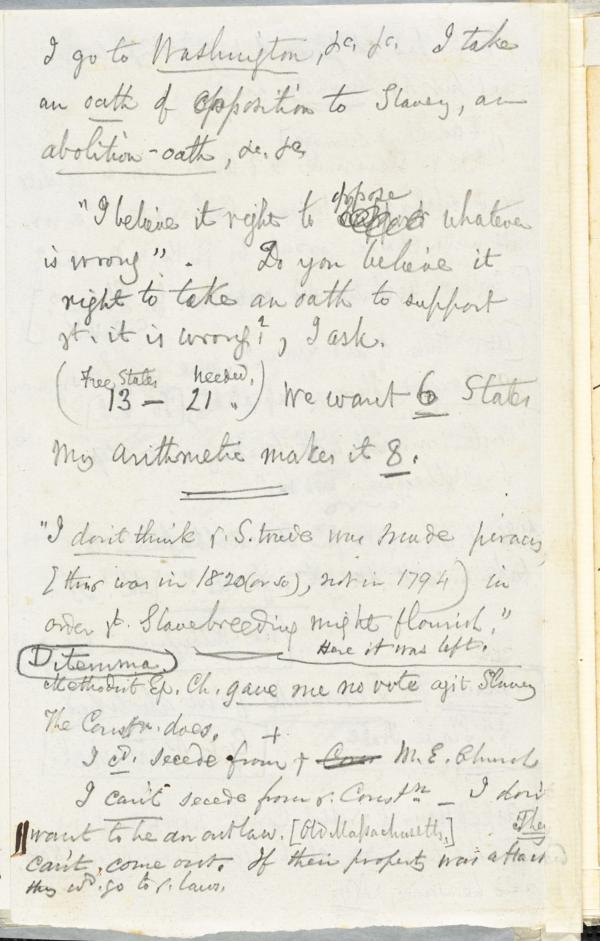 I go to Washington, &c. &c. I take
an oath of opposition to Slavery, an
abolition-oath, &c. &c
oppose
"I believe it right to whatever
is wrong". Do you believe it
right to take an oath to support
yt. it is wrong?, I ask.
Free States needed.
(13 — 21.) We want 6 States
My arithmetic makes it 8.
"I don't think y. S. trade was made piracy,
[this was in 1820 (or so), not in 1794) in
order yt. Slavebreeding might flourish."
Here it was left.
Dilemma
Methodist Ep. Ch. gave me no vote agst Slavery
The Constn. does. +
I cd. secede from y M. E. Church
I can't secede from y. Constn — I don't
want to be an outlaw. [Old Massachusetts,] They
can't, come out. If their property was attack
they wd. go to y. laws.